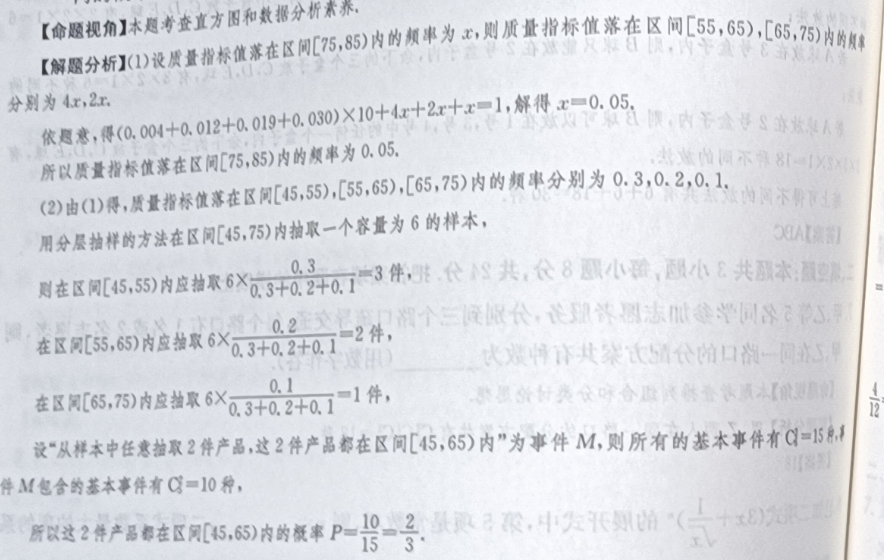 【命题视角】本题考查直方图和数据分析素养.
【解题分析】(1)设质量指标值落在区间[75,85)内的频率为 x,则质量指标值落在区间[55,65),[65,75)内的频率
分别为 4x,2x.
依题意,得(0.004+0.012+0.019+0.030)×10+4x+2x+x=1,解得 x=0.05.
所以质量指标值落在区间[75,85)内的频率为 0.05.
(2)由(1)得,质量指标值落在区间[45,55),[55,65),[65,75)内的频率分别为 0.3,0.2,0.1.
用分层抽样的方法在区间[45,75)内抽取一个容量为 6 的样本,
则在区间[45,55)内应抽取 6×0.3/(0.3+0.2+0.1)=3 件,
在区间[55,65)内应抽取 6×0.2/(0.3+0.2+0.1)=2 件,
在区间[65,75)内应抽取 6×0.1/(0.3+0.2+0.1)=1 件,
设“从样本中任意抽取 2 件产品,这 2 件产品都在区间[45,65)内”为事件 M,则所有的基本事件有 C₆²=15 种,事
件 M 包含的基本事件有 C₅²=10 种,
所以这 2 件产品都在区间[45,65)内的概率 P=10/15=2/3.
=
4/12=